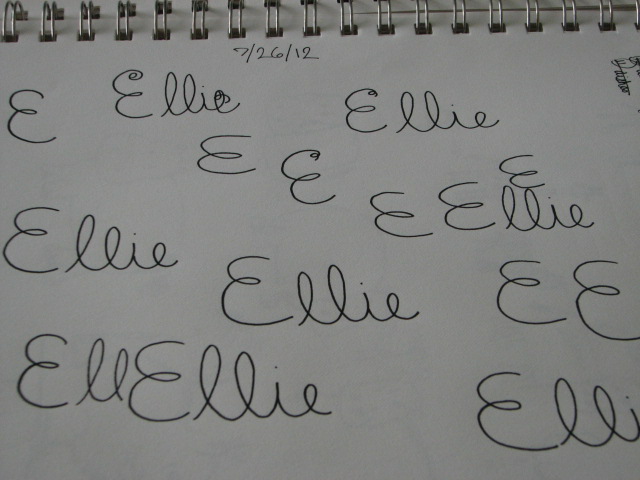 7/26/12
E Ellie Ellie
E E E
E E Ellie
Ellie
Ellie E E
Ell Ellie
Elli